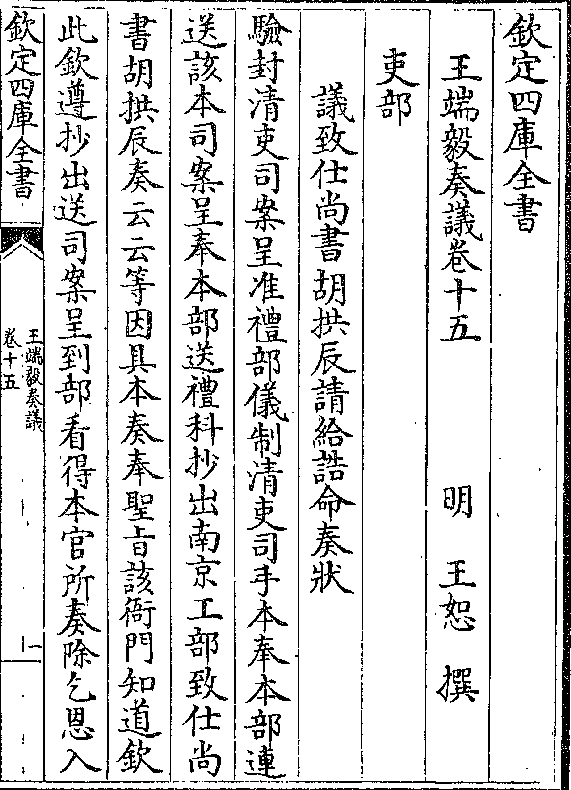 欽定四庫全書
王端毅奏議卷十五　　明　王恕　撰
吏部
議致仕尚書胡拱辰請給誥命奏狀
驗封清吏司案呈准禮部儀制清吏司手本奉本部連
送該本司案呈奉本部送禮科抄出南京工部致仕尚
書胡拱辰奏云云等因具本奏奉聖旨該衙門知道欽
此欽遵抄出送司案呈到部看得本官所奏除乞恩入
欽定四庫全書
王端毅奏議
卷十五
一